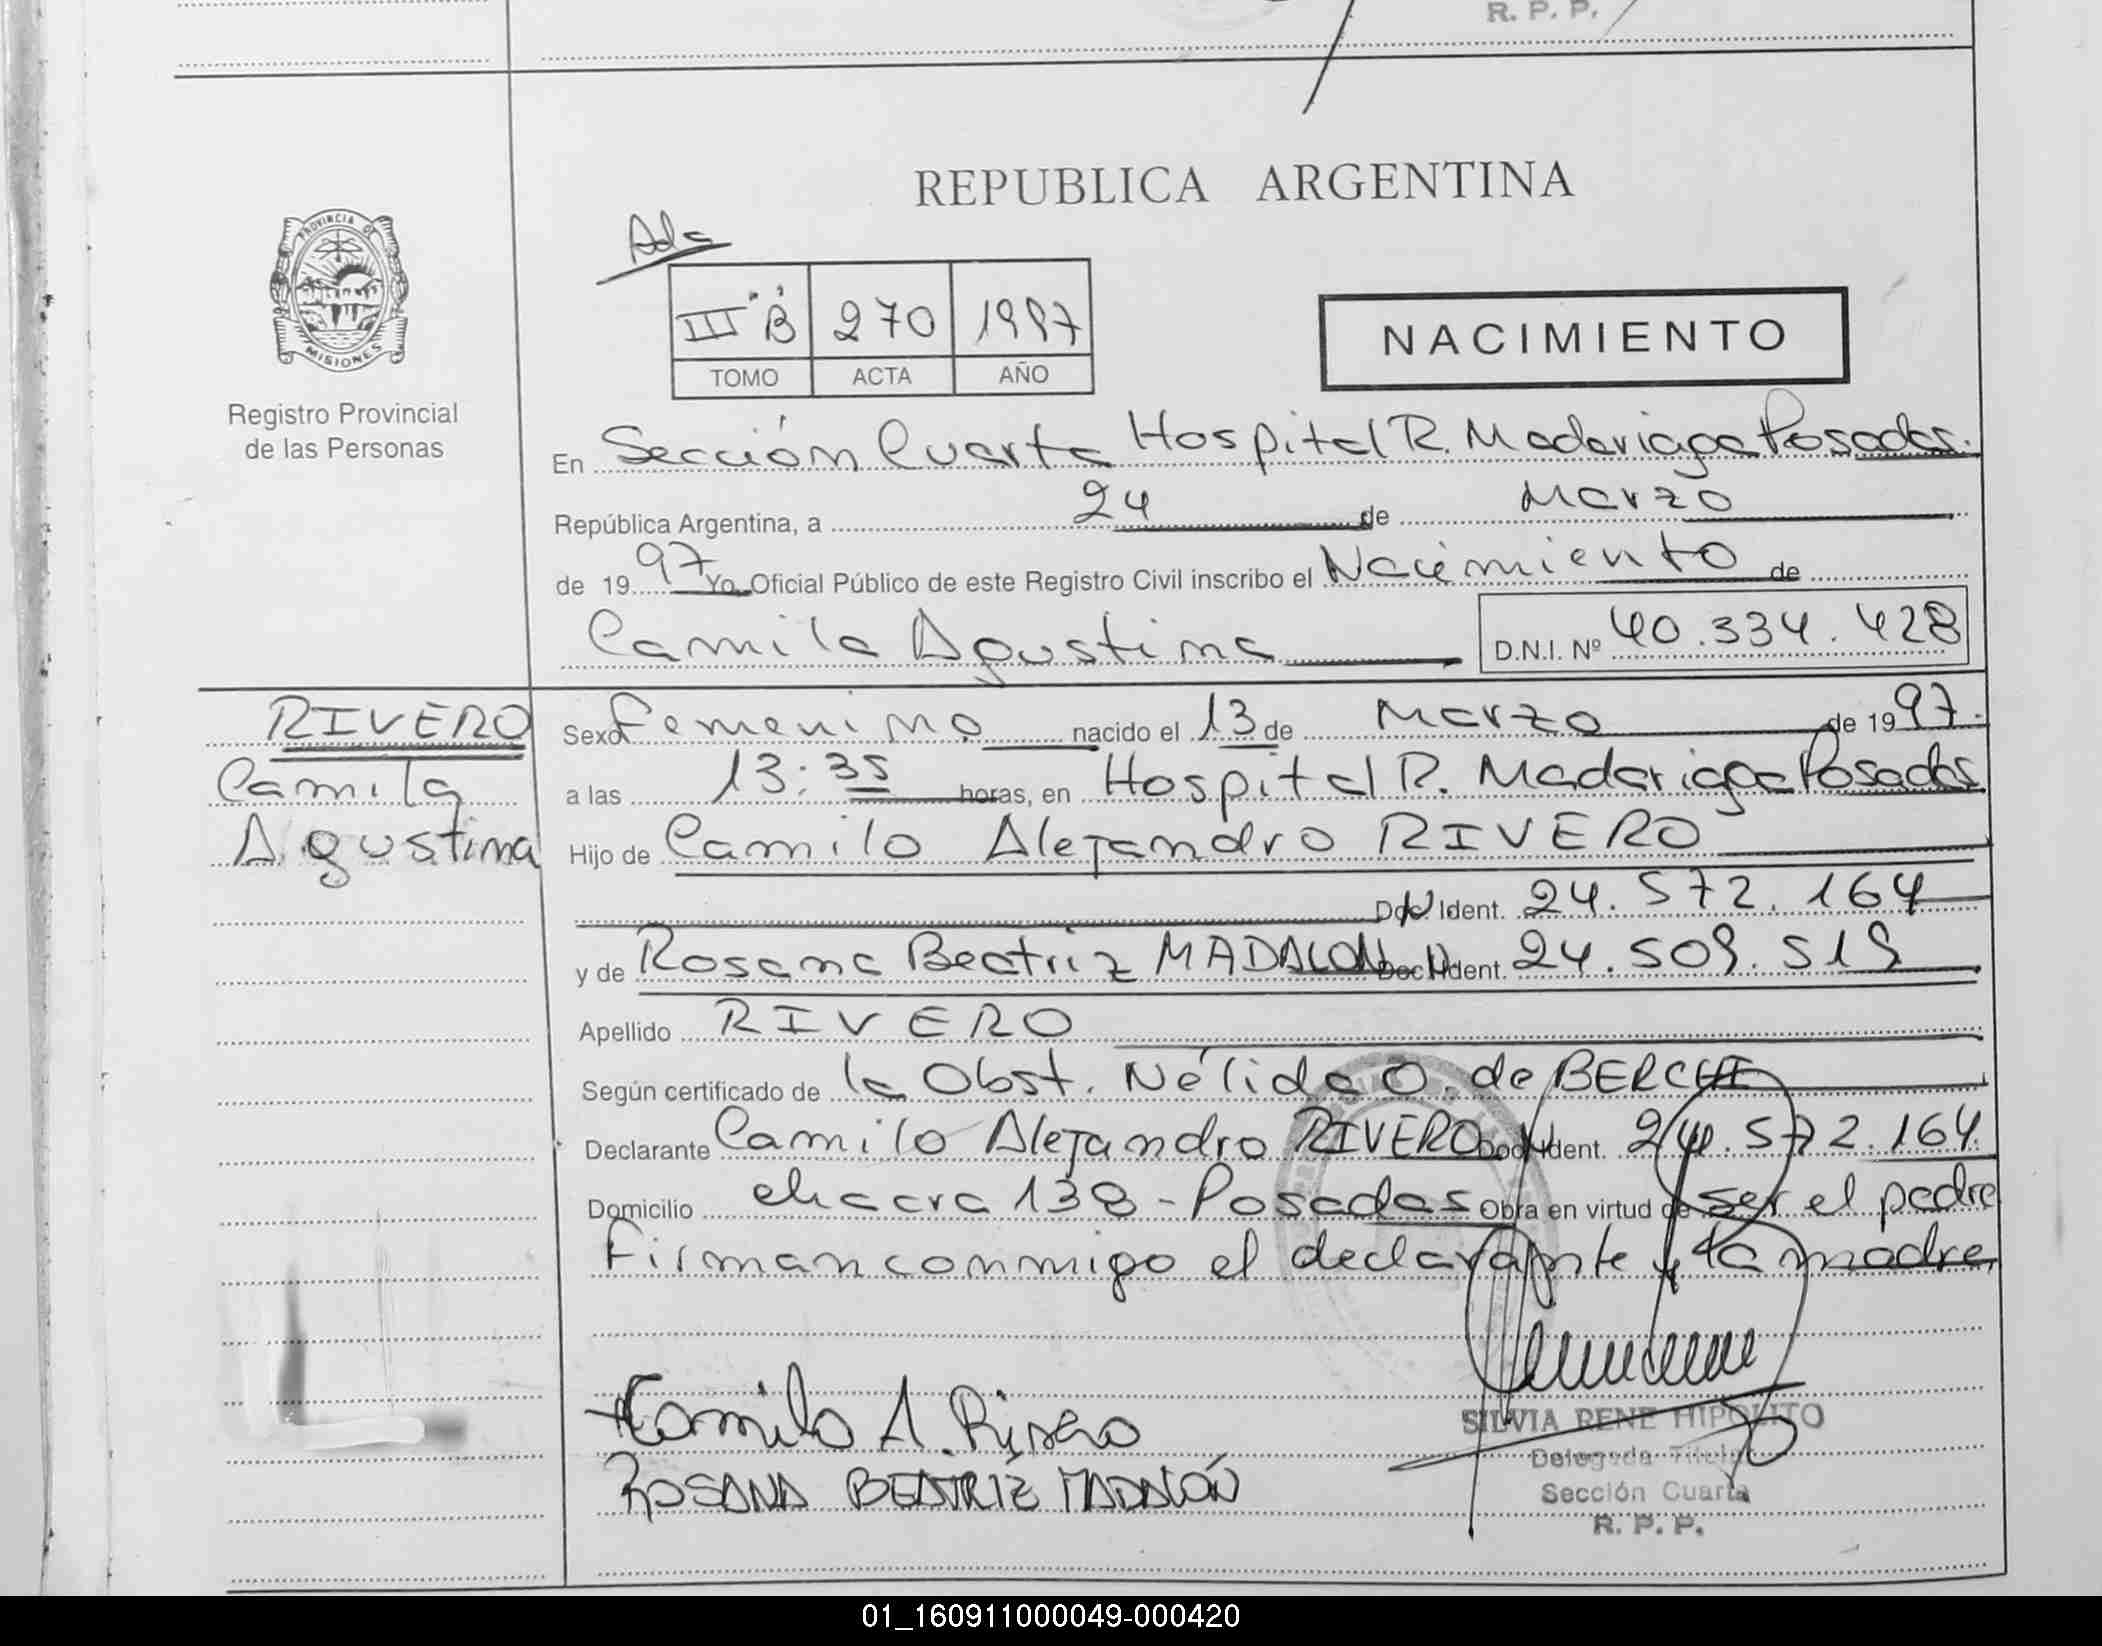 R. P. P.
REPUBLICA ARGENTINA
PROVINCIA DE
MISIONES
Registro Provincial
de las Personas
III "B" 270 1997
TOMO ACTA AÑO
NACIMIENTO
En Sección Cuarta Hospital R. Madariaga Posadas.
República Argentina, a 24 de Marzo
de 1997 Yo, Oficial Público de este Registro Civil inscribo el Nacimiento de
Camila Agustina D.N.I. Nº 40.334.428
RIVERO
Camila
Agustina
Sexo Femenino nacido el 13 de Marzo de 1997.
a las 13:35 horas, en Hospital R. Madariaga Posadas
Hijo de Camilo Alejandro RIVERO
Doc. Ident. 24.572.164
y de Rosana Beatriz MADALON Doc. Ident. 24.509.519
Apellido RIVERO
Según certificado de la Obst. Nélida O. de BERCHE
Declarante Camilo Alejandro RIVERO Doc. Ident. 24.572.164.
Domicilio chacra 138 - Posadas Obra en virtud de ser el padre
Firman conmigo el declarante y la madre,
Camilo A. Rivero
ROSANA BEATRIZ MADALÓN
SILVIA RENE HIPOLITO
Delegada Titular
Sección Cuarta
R. P. P.
01_160911000049-000420